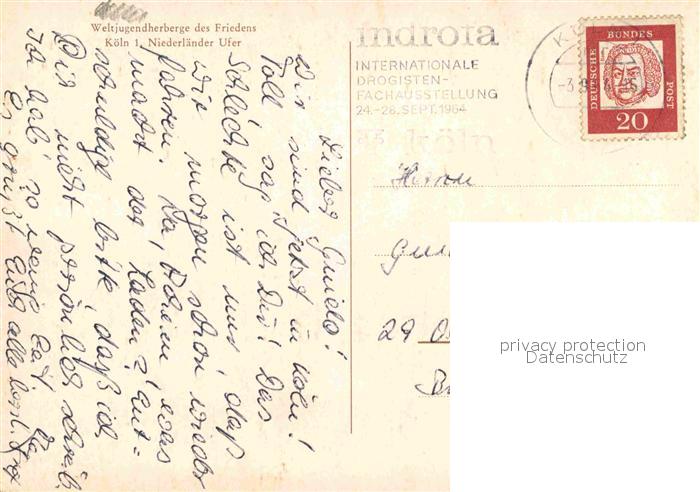 Weltjugendherberge des Friedens
Köln 1, Niederländer Ufer
indrofa
INTERNATIONALE
DROGISTEN-
FACHAUSSTELLUNG
24.-28. SEPT. 1964
köln
DEUTSCHE BUNDES POST
20
Lieber Guido!
Wir sind jetzt in Köln!
Toll, sag ich Dir! Das
Schlechte ist nur daß
wir morgen schon wieder
fahren. Na, Dorein, was
macht der Laden? Ent=
schuldige bitte, daß ich
Dir nicht persönlich schreib
Ich hab' so wenig Zeit.
Es grüßt Euch alle
Herrn
29
privacy protection
Datenschutz